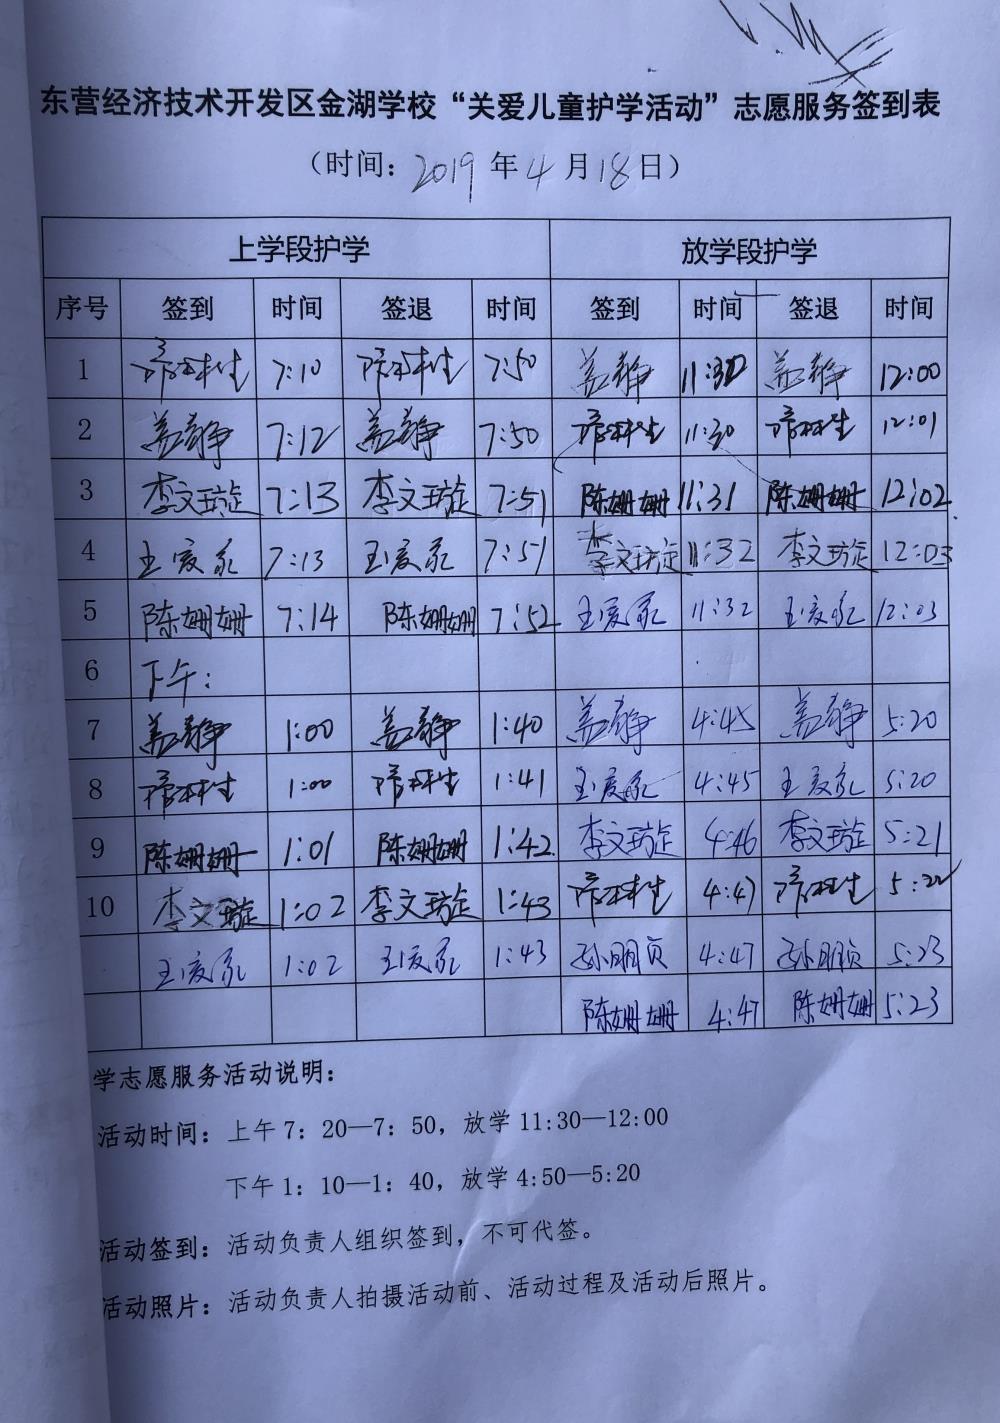 东营经济技术开发区金湖学校“关爱儿童护学活动”志愿服务签到表
（时间：2019年4月18日）
上学段护学 放学段护学
序号 签到 时间 签退 时间 签到 时间 签退 时间
1 7:10 7:50 盖静 11:30 盖静 12:00
2 盖静 7:12 盖静 7:50 11:30 12:01
3 李文璇 7:13 李文璇 7:51 陈姗姗 11:31 陈姗姗 12:02
4 7:13 7:51 李文璇 11:32 李文璇 12:03
5 陈姗姗 7:14 陈姗姗 7:52 11:32 12:03
6 下午：
7 盖静 1:00 盖静 1:40 盖静 4:45 盖静 5:20
8 1:00 1:41 4:45 5:20
9 陈姗姗 1:01 陈姗姗 1:42 李文璇 4:46 李文璇 5:21
10 李文璇 1:02 李文璇 1:43 4:47 5:22
1:02 1:43 4:47 5:23
陈姗姗 4:47 陈姗姗 5:23
学志愿服务活动说明：
活动时间：上午7：20—7：50，放学11:30—12:00
下午1：10—1：40，放学4:50—5:20
活动签到：活动负责人组织签到，不可代签。
活动照片：活动负责人拍摄活动前、活动过程及活动后照片。